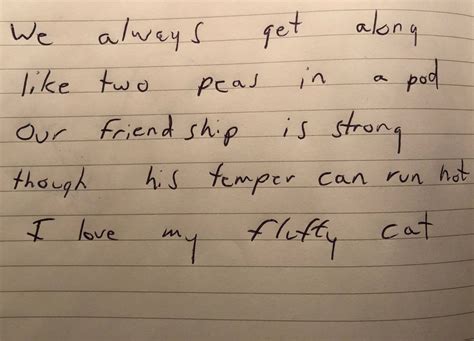 We always get along
like two peas in a pod
Our friendship is strong
though his temper can run hot
I love my fluffy cat